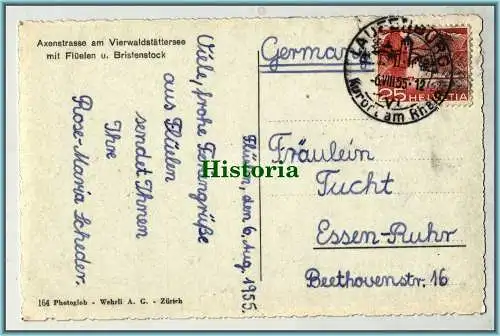 Axenstrasse am Vierwaldstättersee
mit Flüelen u. Bristenstock
Viele, frohe Feriengrüße
aus Flüelen
sendet Ihnen
Ihre
Rose-Marie Scheder.
Flüelen, den 6. Aug. 1955.
Germany
LAUFENBURG
-6.VIII.55-12
Kurort am Rhein
25 HELVETIA
Fräulein
Tucht
Essen-Ruhr
Beethovenstr. 16
Historia
164 Photoglob - Wehrli A. G. - Zürich